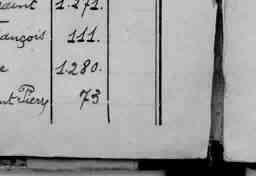 1.271.
ançois 111.
e 1.280.
nt Piery 73